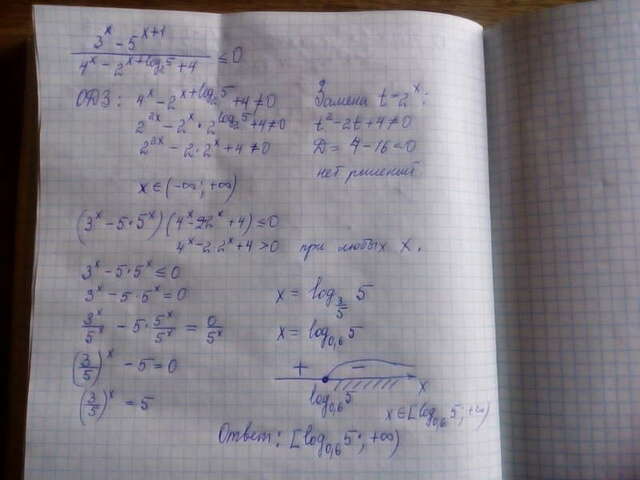 3^x - 5^{x+1}
4^x - 2^{x+log_2 5} + 4 ≤ 0
ОДЗ: 4^x - 2^{x+log_2 5} + 4 ≠ 0
2^{2x} - 2^x · 2^{log_2 5} + 4 ≠ 0
2^{2x} - 2 · 2^x + 4 ≠ 0
x ∈ (-∞; +∞)
Замена t = 2^x:
t^2 - 2t + 4 ≠ 0
D = 4 - 16 < 0
нет решений
(3^x - 5 · 5^x)(4^x - 2·2^x + 4) ≤ 0
4^x - 2 · 2^x + 4 > 0 при любых x.
3^x - 5 · 5^x ≤ 0
3^x - 5 · 5^x = 0
3^x/5^x - 5 · 5^x/5^x = 0/5^x
(3/5)^x - 5 = 0
(3/5)^x = 5
x = log_{3/5} 5
x = log_{0,6} 5
+ -
log_{0,6} 5 x
x ∈ [log_{0,6} 5; +∞)
Ответ: [log_{0,6} 5; +∞)